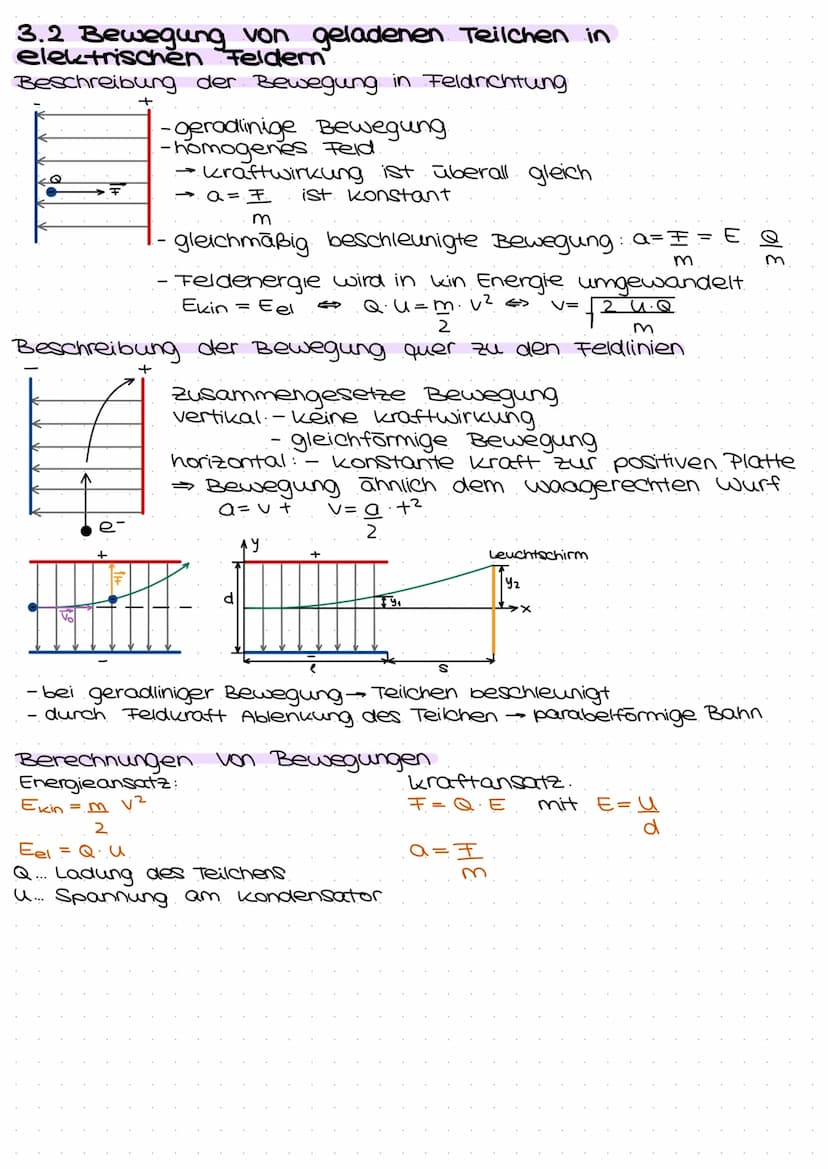 3.2 Bewegung von geladenen Teilchen in
elektrischen Feldern
Beschreibung der Bewegung in Feldrichtung
- +
Q F
- geradlinige Bewegung
- homogenes Feld
→ Kraftwirkung ist überall gleich
→ a = F/m ist konstant
- gleichmäßig beschleunigte Bewegung: a = F/m = E Q/m
- Feldenergie wird in kin Energie umgewandelt
Ekin = Eel ⇔ Q · U = m/2 · v² ⇔ v = √(2 U·Q/m)
Beschreibung der Bewegung quer zu den Feldlinien
- +
e⁻
zusammengesetze Bewegung
vertikal: - keine Kraftwirkung
- gleichförmige Bewegung
horizontal: - konstante Kraft zur positiven Platte
⇒ Bewegung ähnlich dem waagerechten Wurf
a = v t v = a/2 · t²
+ F v₀ -
y + Leuchtschirm
d y₁ y₂ x
- l s
- bei geradliniger Bewegung → Teilchen beschleunigt
- durch Feldkraft Ablenkung des Teilchen → parabelförmige Bahn
Berechnungen von Bewegungen
Energieansatz: Kraftansatz.
Ekin = m/2 v² F = Q · E mit E = U/d
Eel = Q · U a = F/m
Q... Ladung des Teilchens
U... Spannung am Kondensator